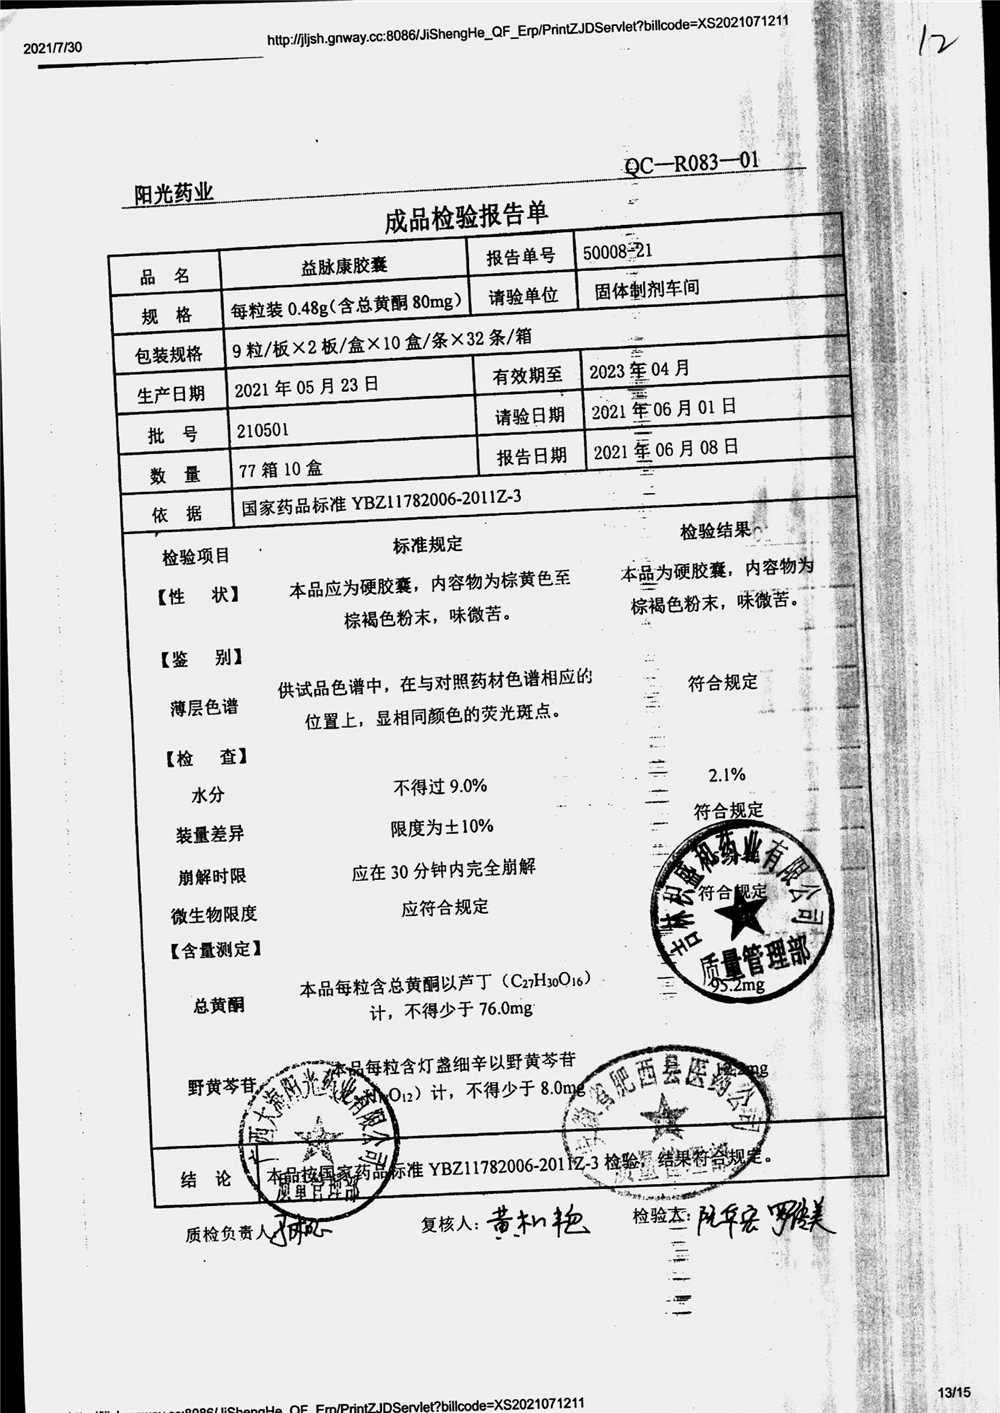 2021/7/30
http://jljsh.gnway.cc:8086/JiShengHe_QF_Erp/PrintZJDServlet?billcode=XS2021071211
12
阳光药业
QC—R083—01
成品检验报告单
品 名 益脉康胶囊 报告单号 50008-21
规 格 每粒装 0.48g(含总黄酮 80mg) 请验单位 固体制剂车间
包装规格 9 粒/板×2 板/盒×10 盒/条×32 条/箱
生产日期 2021 年 05 月 23 日 有效期至 2023 年 04 月
批 号 210501 请验日期 2021 年 06 月 01 日
数 量 77 箱 10 盒 报告日期 2021 年 06 月 08 日
依 据 国家药品标准 YBZ11782006-2011Z-3
检验项目 标准规定 检验结果
【性 状】 本品应为硬胶囊，内容物为棕黄色至 本品为硬胶囊，内容物为
棕褐色粉末，味微苦。 棕褐色粉末，味微苦。
【鉴 别】
薄层色谱 供试品色谱中，在与对照药材色谱相应的 符合规定
位置上，显相同颜色的荧光斑点。
【检 查】
水分 不得过 9.0% 2.1%
装量差异 限度为±10% 符合规定
崩解时限 应在 30 分钟内完全崩解
微生物限度 应符合规定 符合规定
吉林积盛和药业有限公司
质量管理部
【含量测定】
总黄酮 本品每粒含总黄酮以芦丁（C27H30O16） 95.2mg
计，不得少于 76.0mg
野黄芩苷 本品每粒含灯盏细辛以野黄芩苷
O12）计，不得少于 8.0mg
广西大海阳光药业有限公司
质量管理部
安徽省肥西县医药公司
质量管理部
结 论 本品按国家药品标准 YBZ11782006-2011Z-3 检验，结果符合规定。
质检负责人: 复核人: 黄 艳 检验人:
13/15
http://jljsh.gnway.cc:8086/JiShengHe_QF_Erp/PrintZJDServlet?billcode=XS2021071211